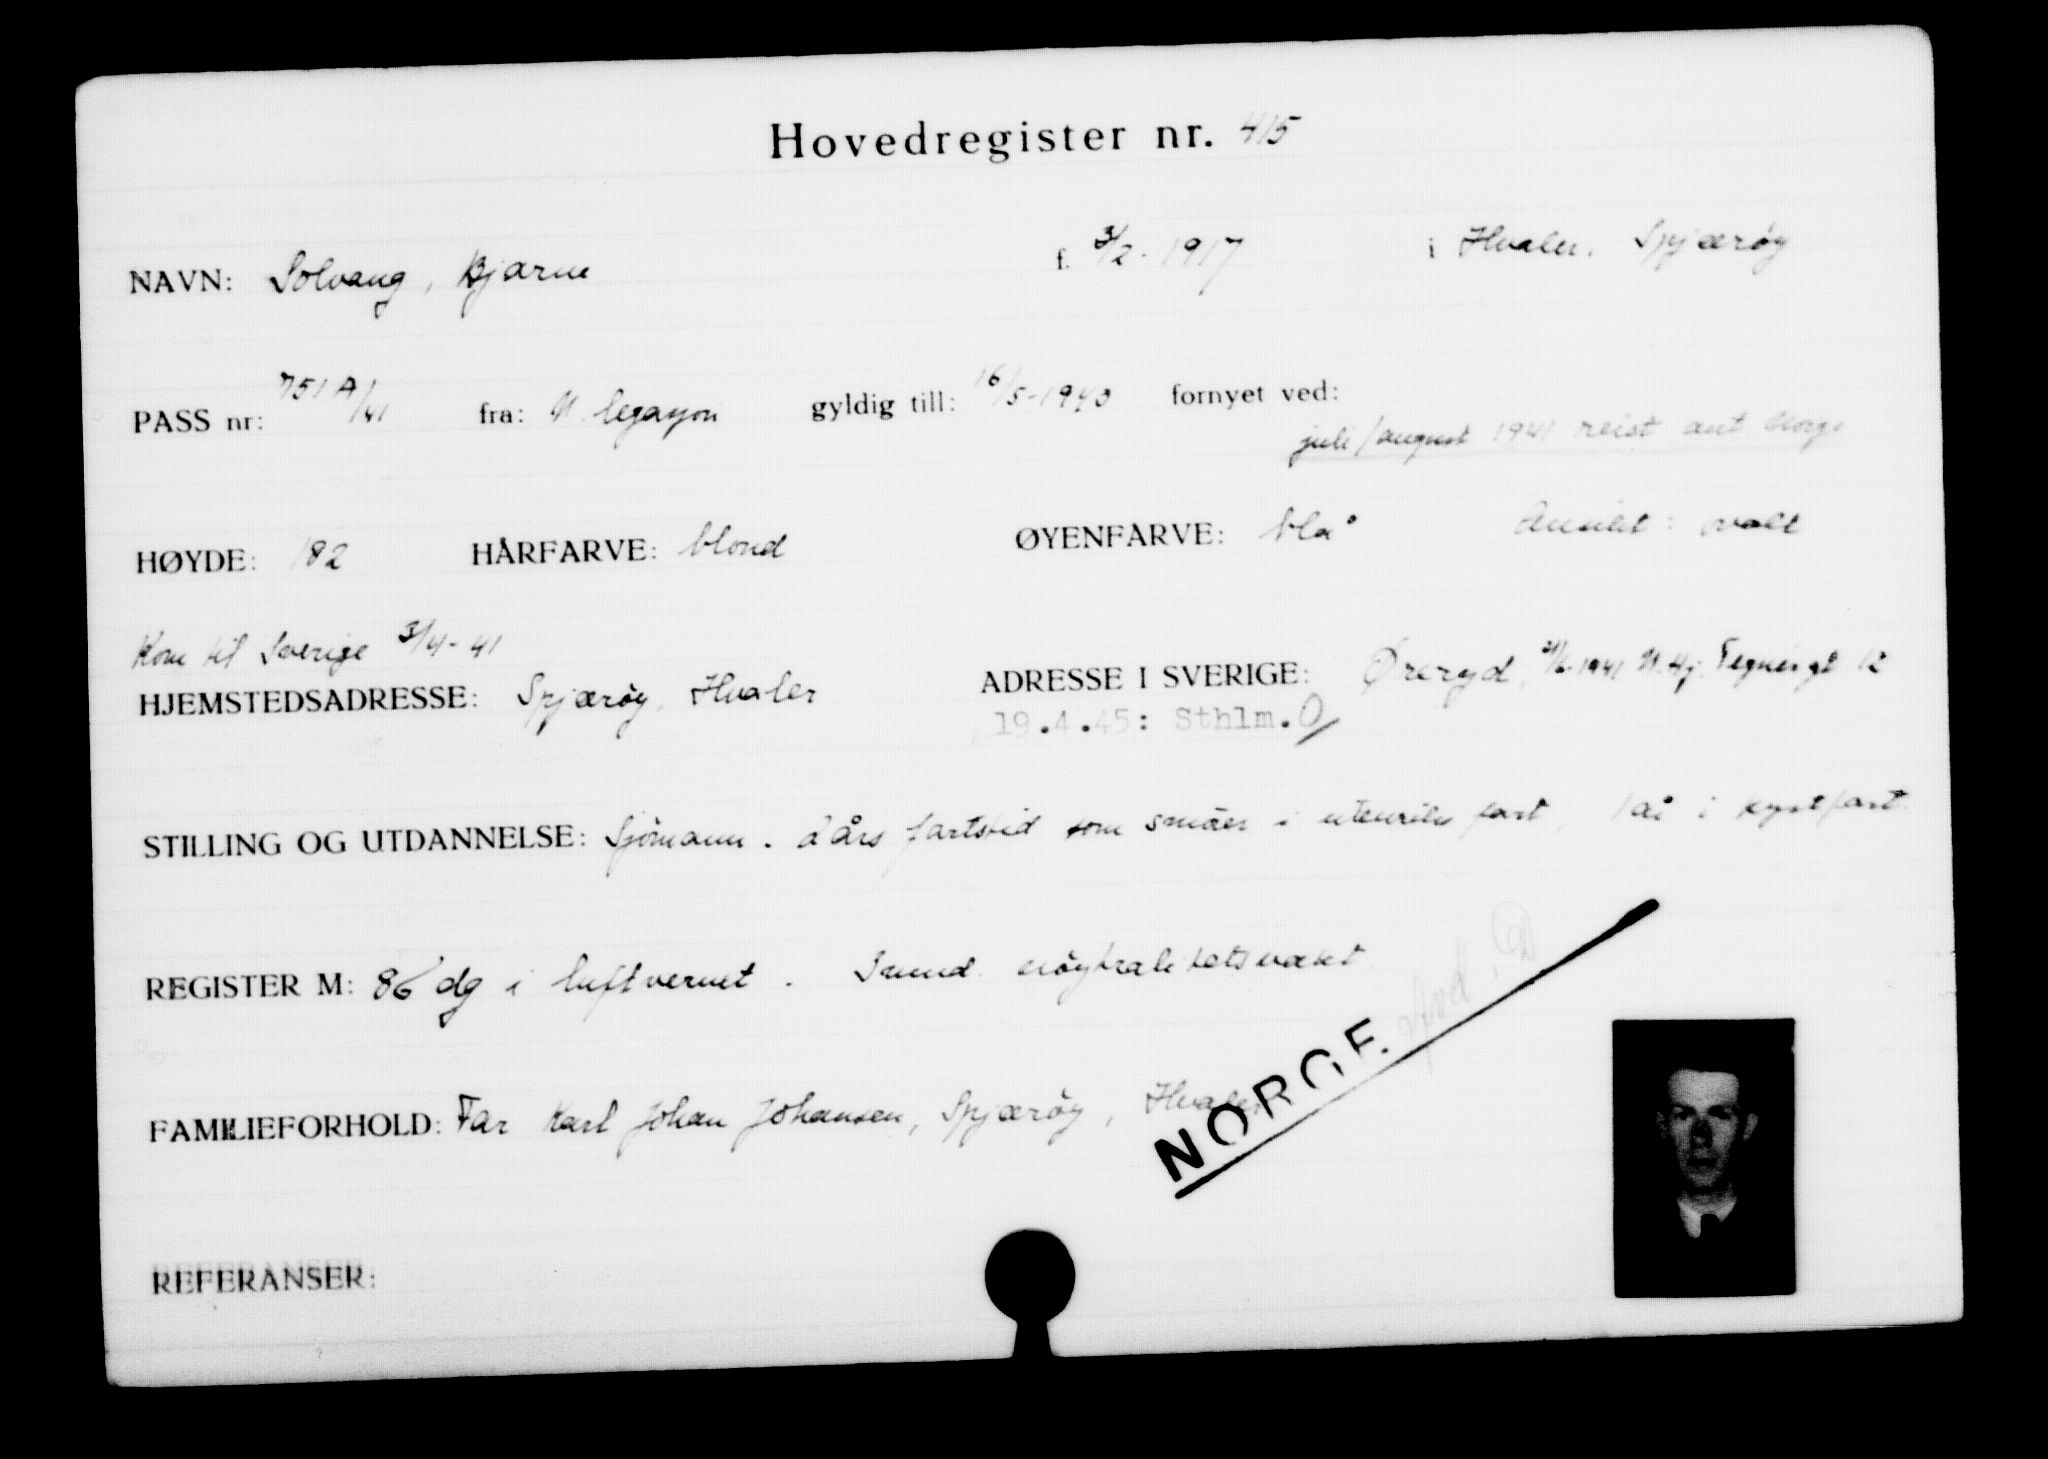 Hovedregister nr. 415
NAVN: Solvang, Bjarne f. 3/2-1917 i Hvaler, Spjærøy
PASS nr: 751 A/41 fra: N. legasjon gyldig till: 16/5-1943 fornyet ved:
juli/august 1941 reist ant Norge
HØYDE: 182 HÅRFARVE: blond ØYENFARVE: blå Ansikt: ovalt
Kom til Sverige 3/4-41
HJEMSTEDSADRESSE: Spjærøy, Hvaler ADRESSE I SVERIGE: Øreryd, 1941 N.Hj. Tegnérgt 12
19.4.45: Sthlm.O/
STILLING OG UTDANNELSE: Sjömann. års fartstid som i utenriks fart, 1 år i kystfart.
REGISTER M: 86 dg i luftvernet. nöytralitetsvakt
NORGE
FAMILIEFORHOLD: Far Karl Johan Johansen, Spjærøy, Hvaler
REFERANSER: